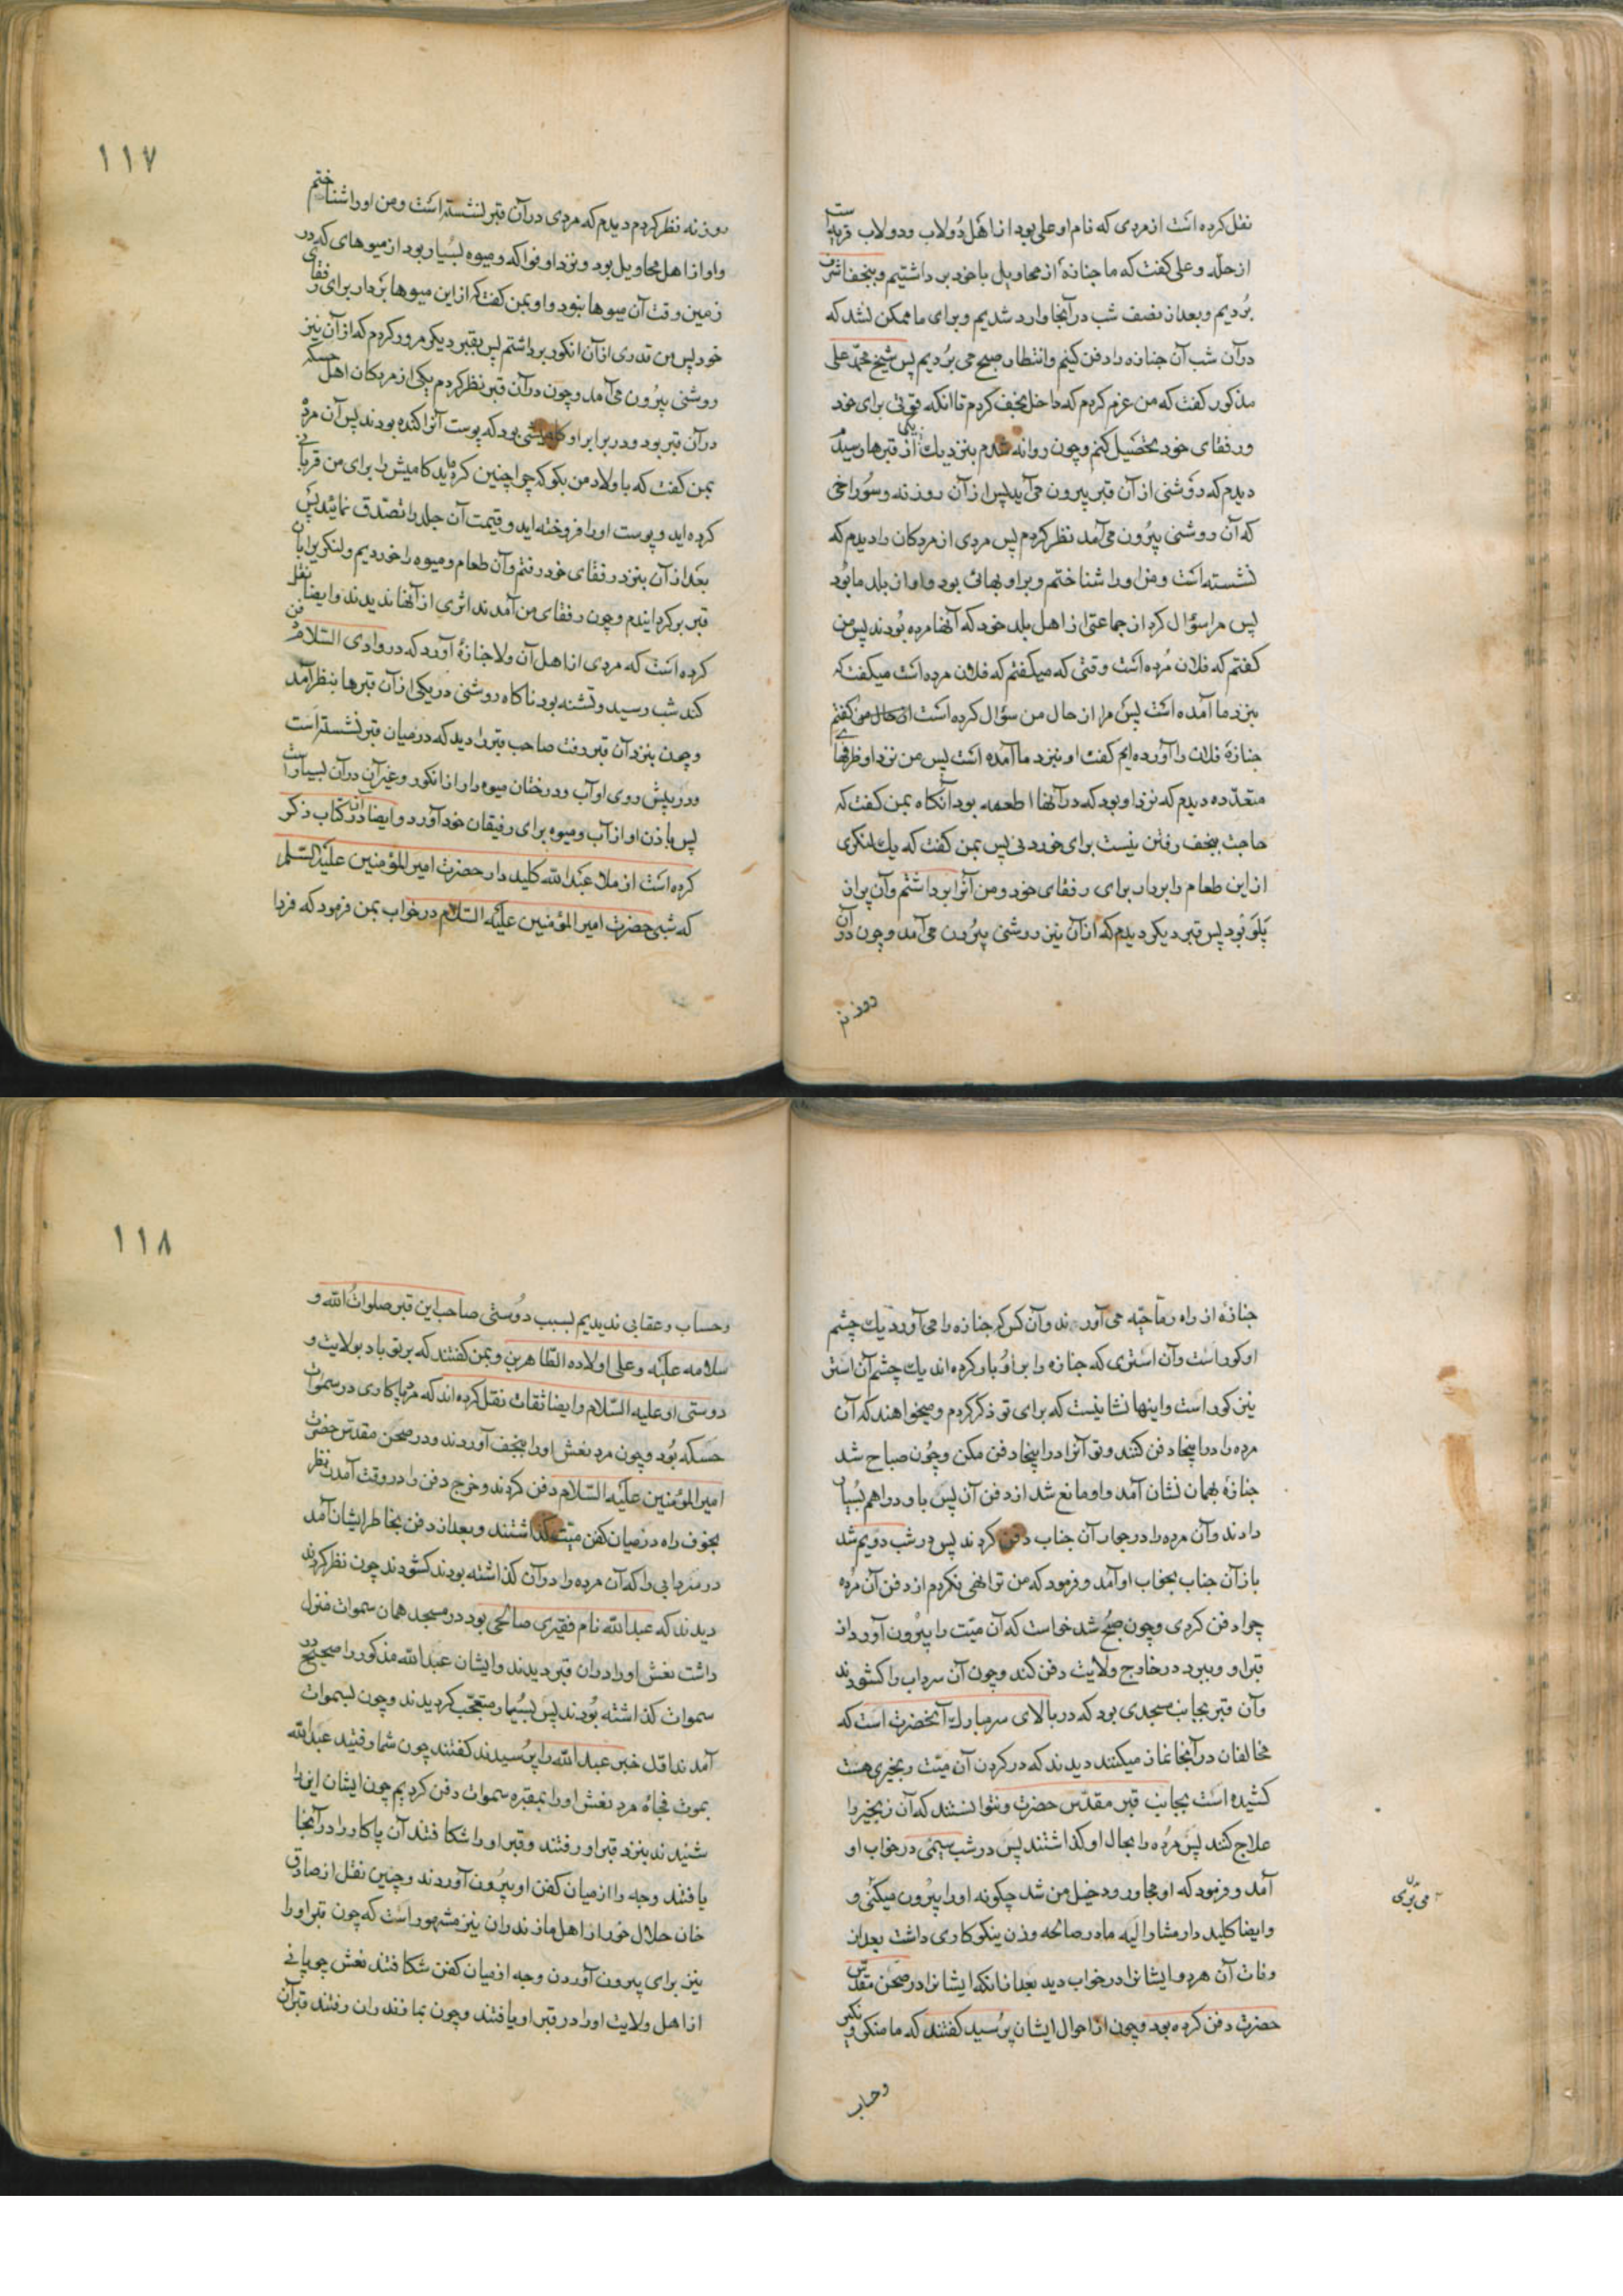 نقل کرده است از مردی که نام او علی بود از اهل دولاب و دولاب قریه‌ایست
از حلّه و علی گفت که ما جنازهٔ از محاویل با خود برداشتیم و بنجف اشرف
بردیم و بعد از نصف شب در آنجا وارد شدیم و برای ما ممکن نشد که
در آن شب آن جنازه را دفن کنیم و انتظار صبح می بردیم پس شیخ محمد علی
مذکور گفت که من عزم کردم که داخل نجف کردم تا آنکه قوتی برای خود
و رفقای خود تحصیل کنم و چون روانه شدم بنزدیک یکی از قبرها رسیدم
دیدم که روشنی از آن قبر بیرون می آید پس از آن روزنه و سوراخی
که آن روشنی بیرون می آمد نظر کردم پس مردی از مردکان را دیدم که
نشسته است و من او را شناختم و بر او بهائی بود و او از بلد ما بود
پس مرا سؤال کرد از جماعتی از اهل بلد خود که آنها مرده بودند پس من
گفتم که فلان مرده است وقتی که میگفتم که فلان مرده است میگفت که
بنزد ما آمده است پس مرا از حال من سؤال کرده است گفتم
جنازهٔ فلان را آورده ایم گفت او نیز نزد ما آمده است پس من نزد او ظرفهای
متعدده دیدم که نزد او بود که در آنها اطعمه بود آنگاه بمن گفت که
حاجت بنجف رفتن نیست برای خوردنی پس بمن گفت که یک لنکری
از این طعام را بردار برای رفقای خود و من آنرا برداشتم و آن پر از
پلو بود پس قبر دیگر دیدم که از آن نیز روشنی بیرون می آمد و چون در آن
روزنه
١١٧
روزنه نظر کردم دیدم که مردی در آن قبر نشسته است و من او را شناختم
و او از اهل محاویل بود و نزد او فواکه و میوه بسیار بود از میوهای که در
زمین وقت آن میوها نبود و او بمن گفت که از این میوها بردار برای رفقای
خود پس من قدری از آن انگور برداشتم پس بقبر دیگر مرور کردم که از آن نیز
روشنی بیرون می آمد و چون در آن قبر نظر کردم یکی از مردکان اهل حسکه
در آن قبر بود و در برابر او کامیشی بود که پوست آنرا کنده بودند پس آن مرد
بمن گفت که با ولاد من بگو که چرا چنین کرده اید کامیش را برای من قربانی
کرده اید و پوست او را فروخته اید و قیمت آن جلد را تصدق نمائید پس
بعد از آن بنزد رفقای خود رفتم و آن طعام و میوه را خوردیم و لنکری را بآن
قبر برگردانیدم و چون رفقای من آمدند اثری از آنها ندیدند و ایضا نقل
کرده است که مردی از اهل آن ولا جنازهٔ آورد که در وادی السلام دفن
کند شب رسید و تشنه بود ناگاه روشنی در یکی از آن قبرها بنظر آمد
و چون بنزد آن قبر رفت صاحب قبر را دید که در میان قبر نشسته است
و در پیش روی او آب و درختان میوه دار از انگور و غیر آن در آن بسیار است
پس باذن او از آب و میوه برای رفیقان خود آورد و ایضا در آن کتاب ذکر
کرده است از ملا عبد الله کلید دار حضرت امیر المؤمنین علیه السلم
که شبی حضرت امیر المؤمنین علیه السلام در خواب بمن فرمود که فردا
جنازهٔ از راه رماحیّه می آورند و آن کس که جنازه را می آورد یک چشم
او کور است و آن استری که جنازه را بر او بار کرده اند یک چشم آن استر
نیز کور است و اینها نشانیست که برای تو ذکر کردم و میخواهند که آن
مرده را در اینجا دفن کنند و تو آنرا در اینجا دفن مکن و چون صباح شد
جنازهٔ بهمان نشان آمد و او مانع شد از دفن آن پس باو دراهم بسیار
دادند و آن مرده را در جوار آن جناب دفن کردند پس در شب دویم شد
باز آن جناب بخواب او آمد و فرمود که من ترا نهی نکردم از دفن آن مرده
چرا دفن کردی و چون صبح شد خواست که آن میّت را بیرون آورد از
قبر او و ببرد در خارج ولایت دفن کند و چون آن سرداب را گشودند
و آن قبر بجانب مسجدی بود که در بالای سر مبارک آنحضرت است که
مخالفان در آنجا نماز میکنند دیدند که در گردن آن میّت زنجیری هست
کشیده است بجانب قبر مقدّس حضرت و نتوانستند که آن زنجیر را
علاج کنند پس مرده را بحال او گذاشتند پس در شب سیّمی در خواب او
آمد و فرمود که او مجاور و دخیل من شد چگونه او را بیرون میکنی و
و ایضا کلید دار مشار الیه مادر صالحه و زن نیکو کاری داشت بعد از
وفات آن هر دو ایشانرا در خواب دید بعد از آنکه ایشانرا در صحن مقدّس
حضرت دفن کرده بود و چون از احوال ایشان پرسید گفتند که ما منکر و نکیر
وحساب
١١٨
و حساب و عقابی ندیدیم بسبب دوستی صاحب این قبر صلوات الله و
سلامه علیه و علی اولاده الطّاهرین و بمن گفتند که بر تو باد بولایت و
دوستی او علیه السّلام و ایضا ثقات نقل کرده اند که مرد پاکاری در سموات
حسکه بود و چون مرد نعش او را بنجف آوردند و در صحن مقدّس حضرت
امیر المؤمنین علیه السّلام دفن کردند و خرج دفن را در وقت آمدن نظر
بخوف راه در میان کفن میّت گذاشتند و بعد از دفن بخاطر ایشان آمد
در سردابی را که آن مرده را در آن گذاشته بودند گشودند چون نظر کردند
دیدند که عبد الله نام فقیری صالحی بود در مسجد همان سموات منزل
داشت نعش او را در ان قبر دیدند و ایشان عبد الله مذکور را صحیح در
سموات گذاشته بودند پس بسیار متعجّب گردیدند و چون بسموات
آمدند اوّل خبر عبد الله را پرسیدند گفتند چون شما رفتید عبد الله
بموت فجاه مرد نعش او را بمقبرهٔ سموات دفن کردیم چون ایشان این را
شنیدند بنزد قبر او رفتند و قبر او را شکافتند آن پاکار را در آنجا
یافتند وجه را از میان کفن او بیرون آوردند و چنین نقل از صادق
خان حلال خور از اهل مازندران نیز مشهور است که چون قبر او را
نیز برای بیرون آوردن وجه از میان کفن شکافتند نعش چوپانی
از اهل ولایت او را در قبر او یافتند و چون بمازندران رفتند قبر آن